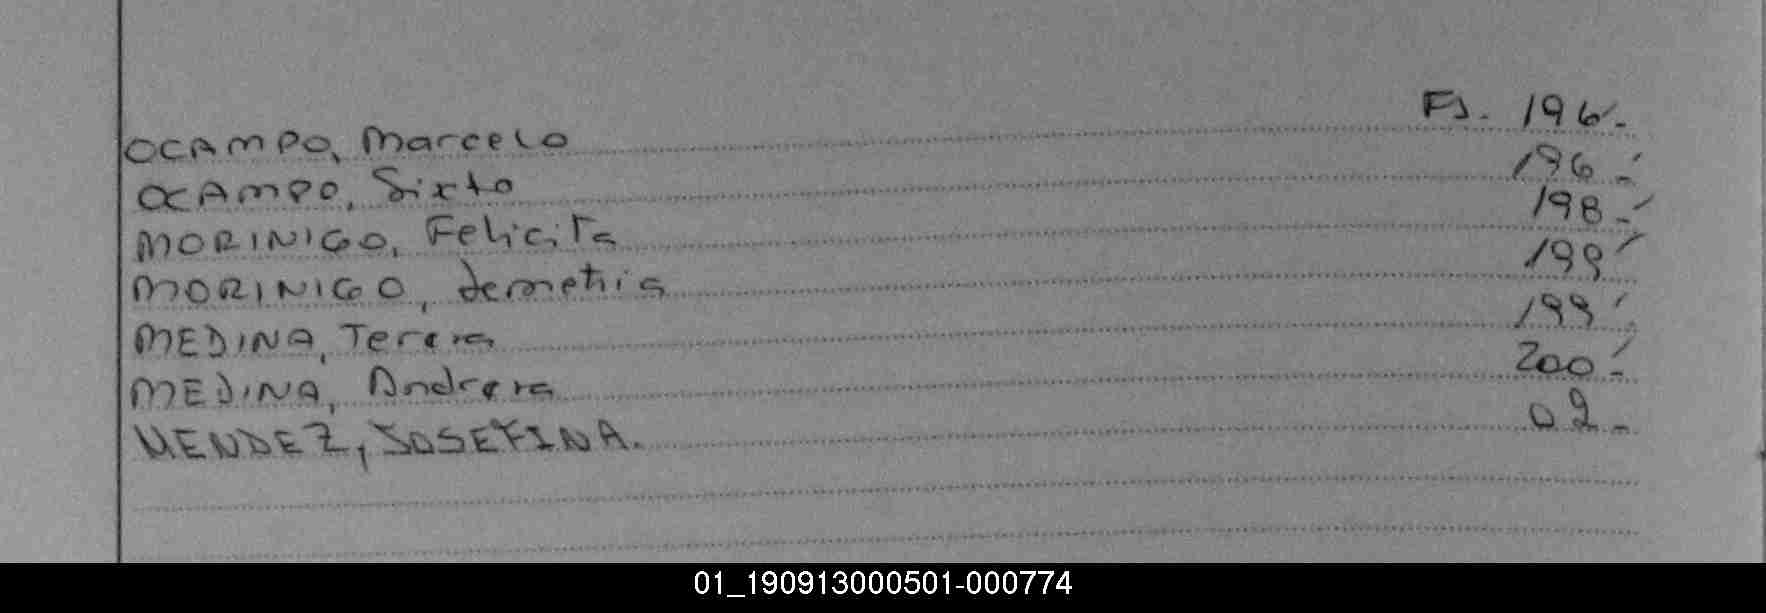 OCAMPO, Marcelo Fs. 196.-
OCAMPO, Sixto 196.-
MORINIGO, Felicita 198.-
MORINIGO, demetria 199
MEDINA, Teresa 199
MEDINA, Andresa 200.-
MENDEZ, JOSEFINA. 02.-
01_190913000501-000774